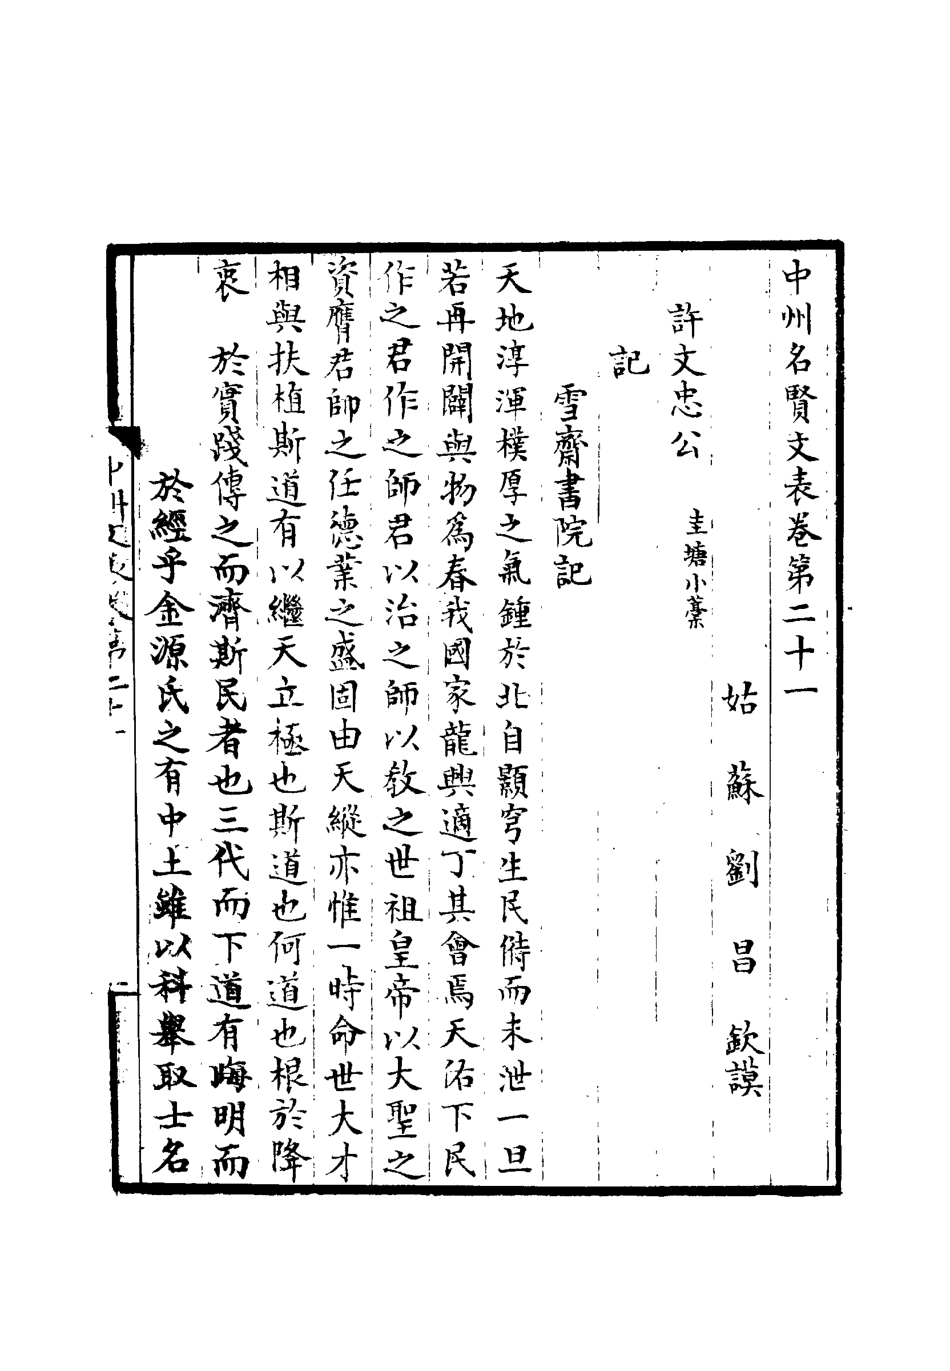 中州名賢文表卷第二十一
姑蘇劉昌欽謨
許文忠公 圭塘小藁
記
雪齋書院記
天地淳渾樸厚之氣鍾於北自顥穹生民偫而未泄一旦
若再開闢與物爲春我國家龍興適丁其會焉天佑下民
作之君作之師君以治之師以教之世祖皇帝以大聖之
資膺君師之任德業之盛固由天縱亦惟一時命世大才
相與扶植斯道有以繼天立極也斯道也何道也根於降
衷 於實踐傳之而濟斯民者也三代而下道有晦明而
於經乎金源氏之有中土雖以科舉取士名
中州文表卷第二十一